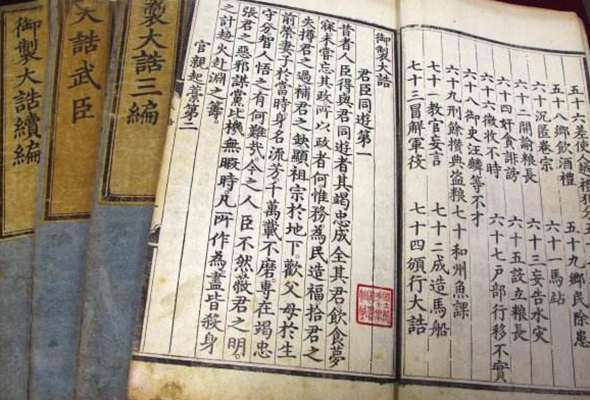 五十六差使人越禮犯分
五十八鄉飲酒禮 五十九鄉民除患
六十沉匿卷宗 六十一馬站
六十二關諭糧長 六十三妄告水災
六十四奸貪誹謗 六十五設立糧長
六十六徵收不時 六十七戶部行移不實
六十八御史汪麟等不才
六十九刑餘攢典盜糧 七十和州魚課
七十一教官妄言 七十二成造馬船
七十三冒解軍役 七十四頒行大誥
御製大誥
君臣同遊第一
昔者人臣得與君同遊者其竭忠成全其君飲食夢
寐未嘗忘其政所以政者何惟務為民造福拾君之
失撙君之過補君之缺顯祖宗於地下歡父母於生
前榮妻子於當時身名流芳千萬載不磨專在竭忠
守分智人悟之有何難哉今之人臣不然蔽君之明
張君之惡邪謀黨比機無暇時凡所作為盡皆殺身
之計趨火赴淵之籌
官親起藁第二
製大誥三編
大誥武臣
御製大誥續編